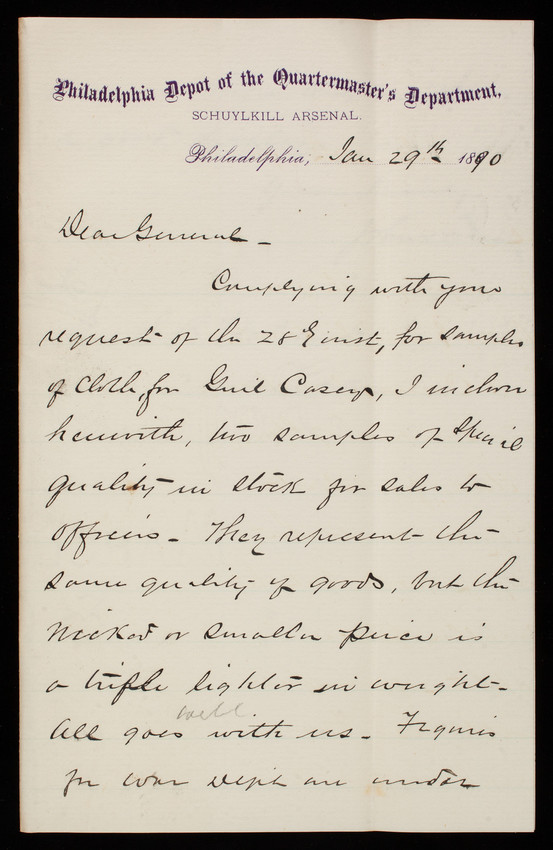 Philadelphia Depot of the Quartermaster's Department,
SCHUYLKILL ARSENAL.
Philadelphia, Jan 29th 1890
Dear General -
Complying with your
request of the 28th inst, for samples
of cloth, for Genl Casey, I inclose
herewith, two samples of special
quality in stock for sales to
officers - They represent the
same quality of goods, but the
nicked or smaller piece is
a trifle lighter in weight -
All goes well with us - Figures
for War Dept are under